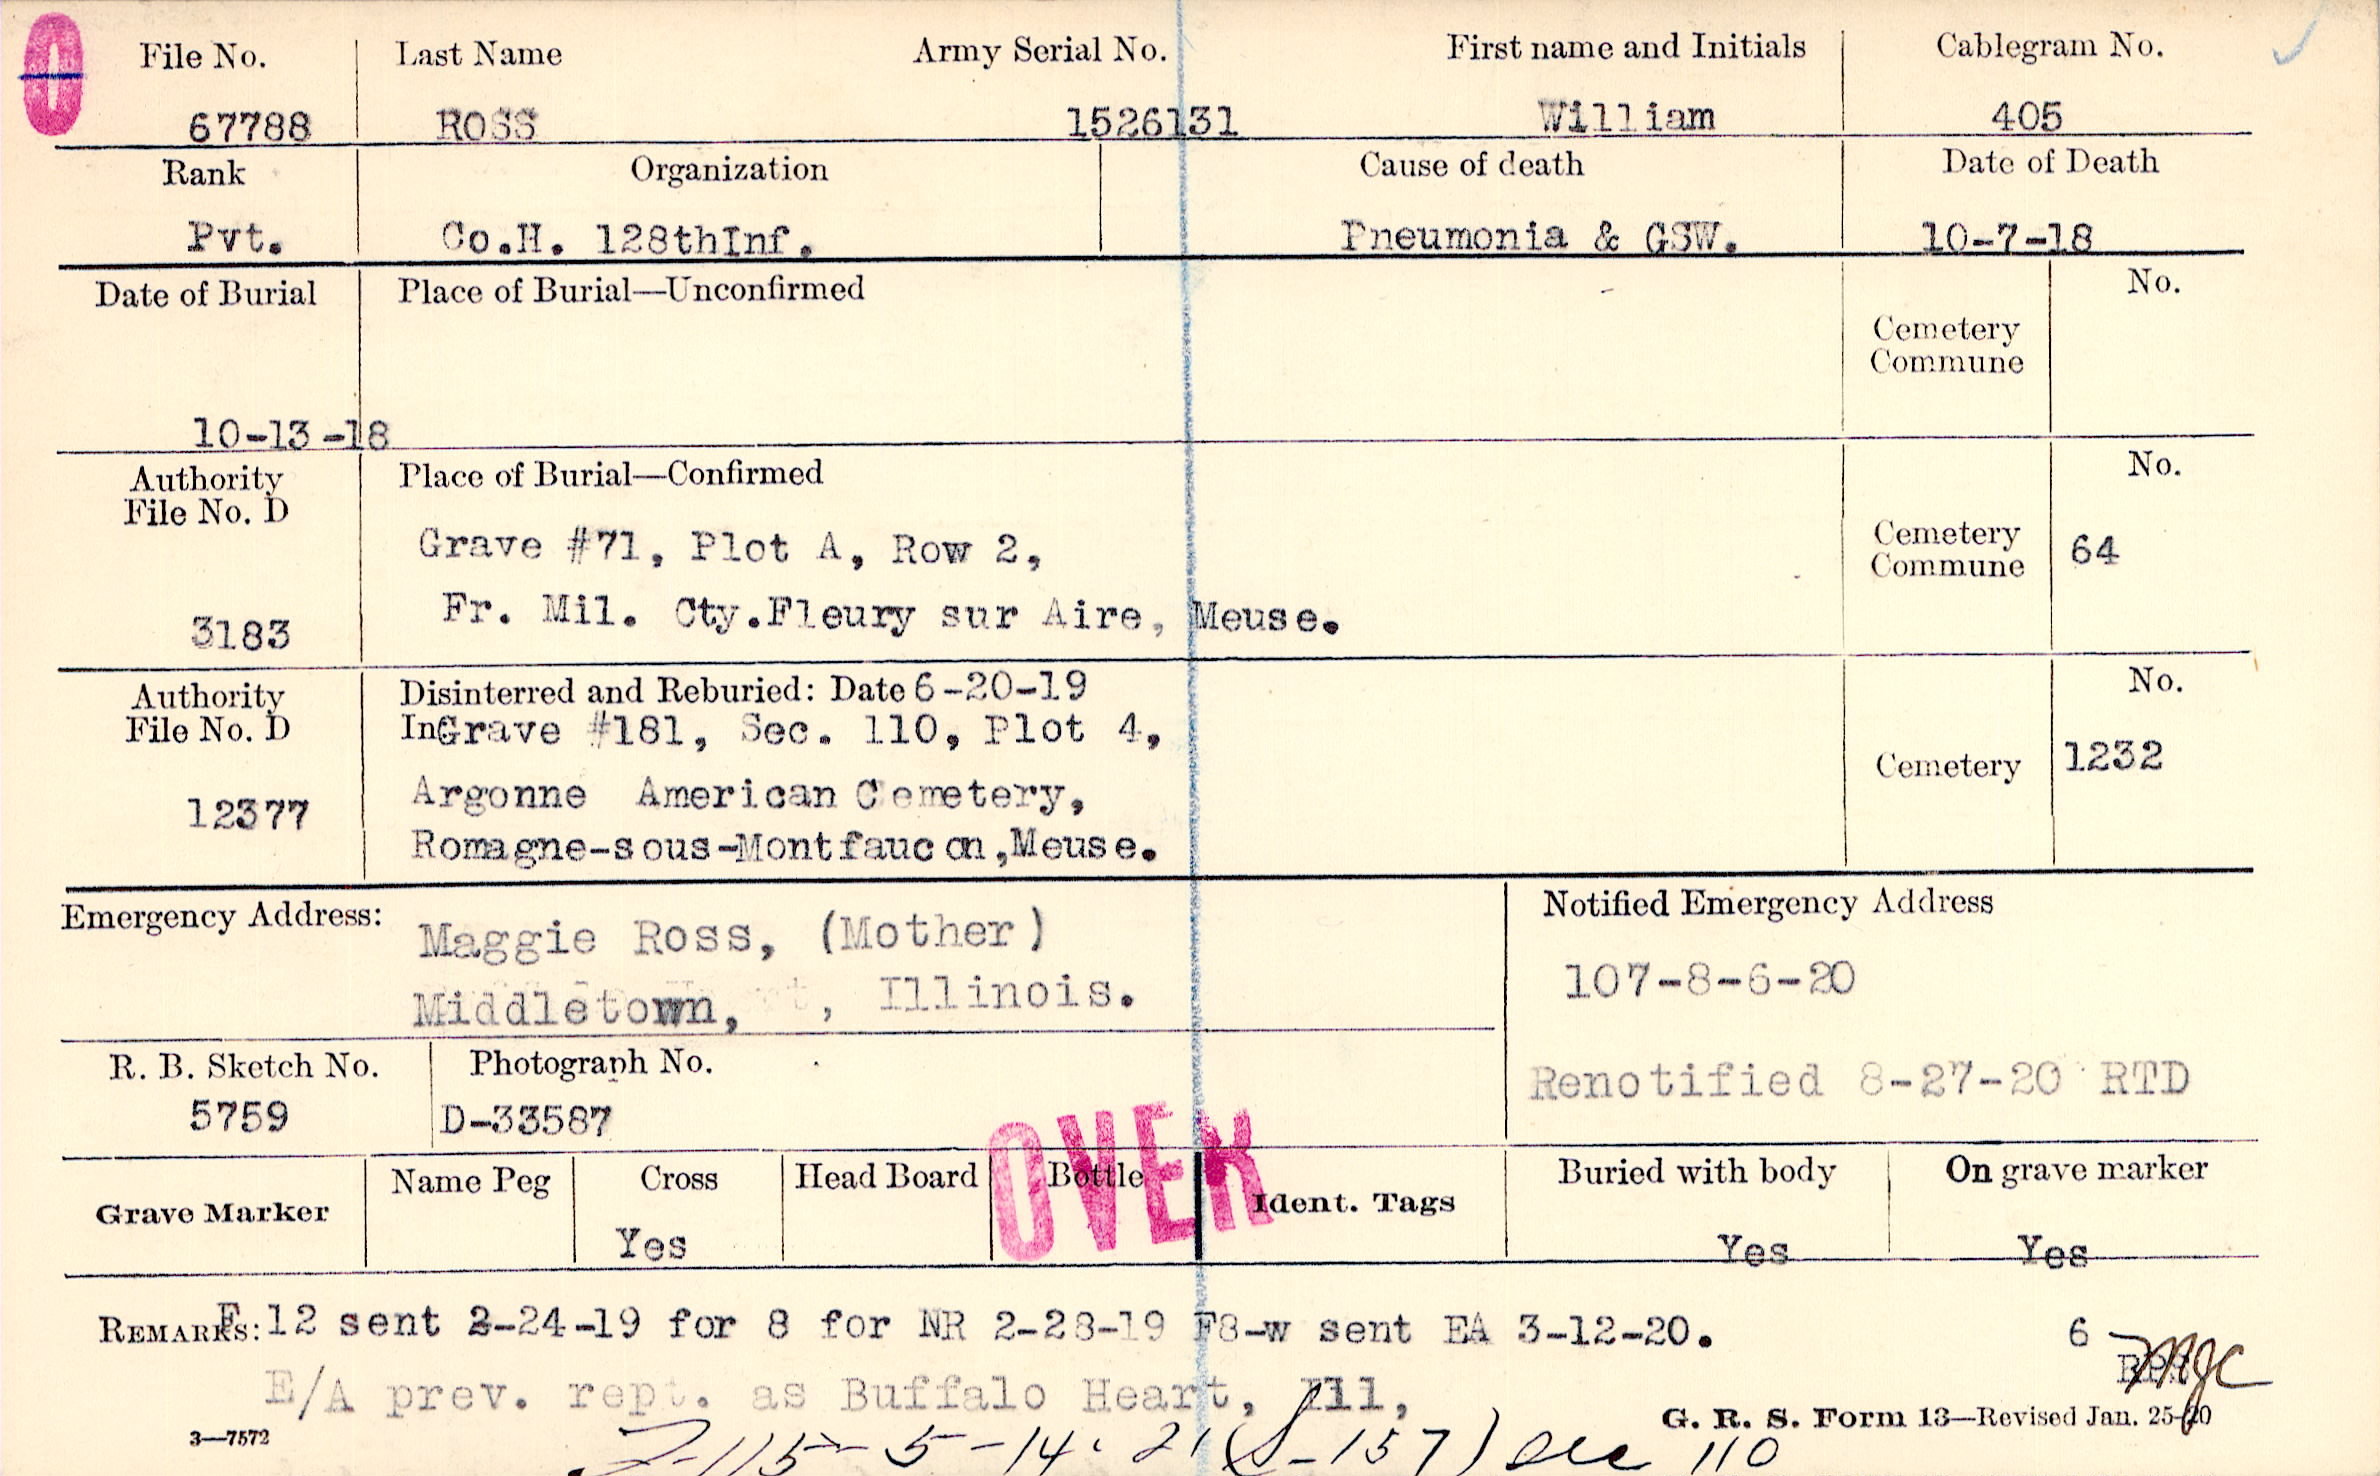 O
File No. Last Name Army Serial No. First name and Initials Cablegram No.
67788 ROSS 1526131 William 405
Rank Organization Cause of death Date of Death
Pvt. Co.H. 128thInf. Pneumonia & GSW. 10-7-18
Date of Burial Place of Burial—Unconfirmed No.
Cemetery
Commune
10-13-18
Authority Place of Burial—Confirmed No.
File No. D
Grave #71, Plot A, Row 2, Cemetery
Commune 64
Fr. Mil. Cty.Fleury sur Aire, Meuse.
3183
Authority Disinterred and Reburied: Date 6-20-19 No.
File No. D InGrave #181, Sec. 110, Plot 4,
Cemetery 1232
12377 Argonne American Cemetery,
Romagne-sous-Montfaucon,Meuse.
Emergency Address: Maggie Ross, (Mother) Notified Emergency Address
Middletown, , Illinois. 107-8-6-20
R. B. Sketch No. Photograph No. Renotified 8-27-20 RTD
5759 D-33587
OVER
Grave Marker Name Peg Cross Head Board Bottle Ident. Tags Buried with body On grave marker
Yes Yes Yes
REMARKS: F.12 sent 2-24-19 for 8 for NR 2-28-19 F8-w sent EA 3-12-20. 6
E/A prev. rept. as Buffalo Heart, Ill,
3—7572 G. R. S. Form 13—Revised Jan. 25-20
5-14-21 (S-157) Sec 110